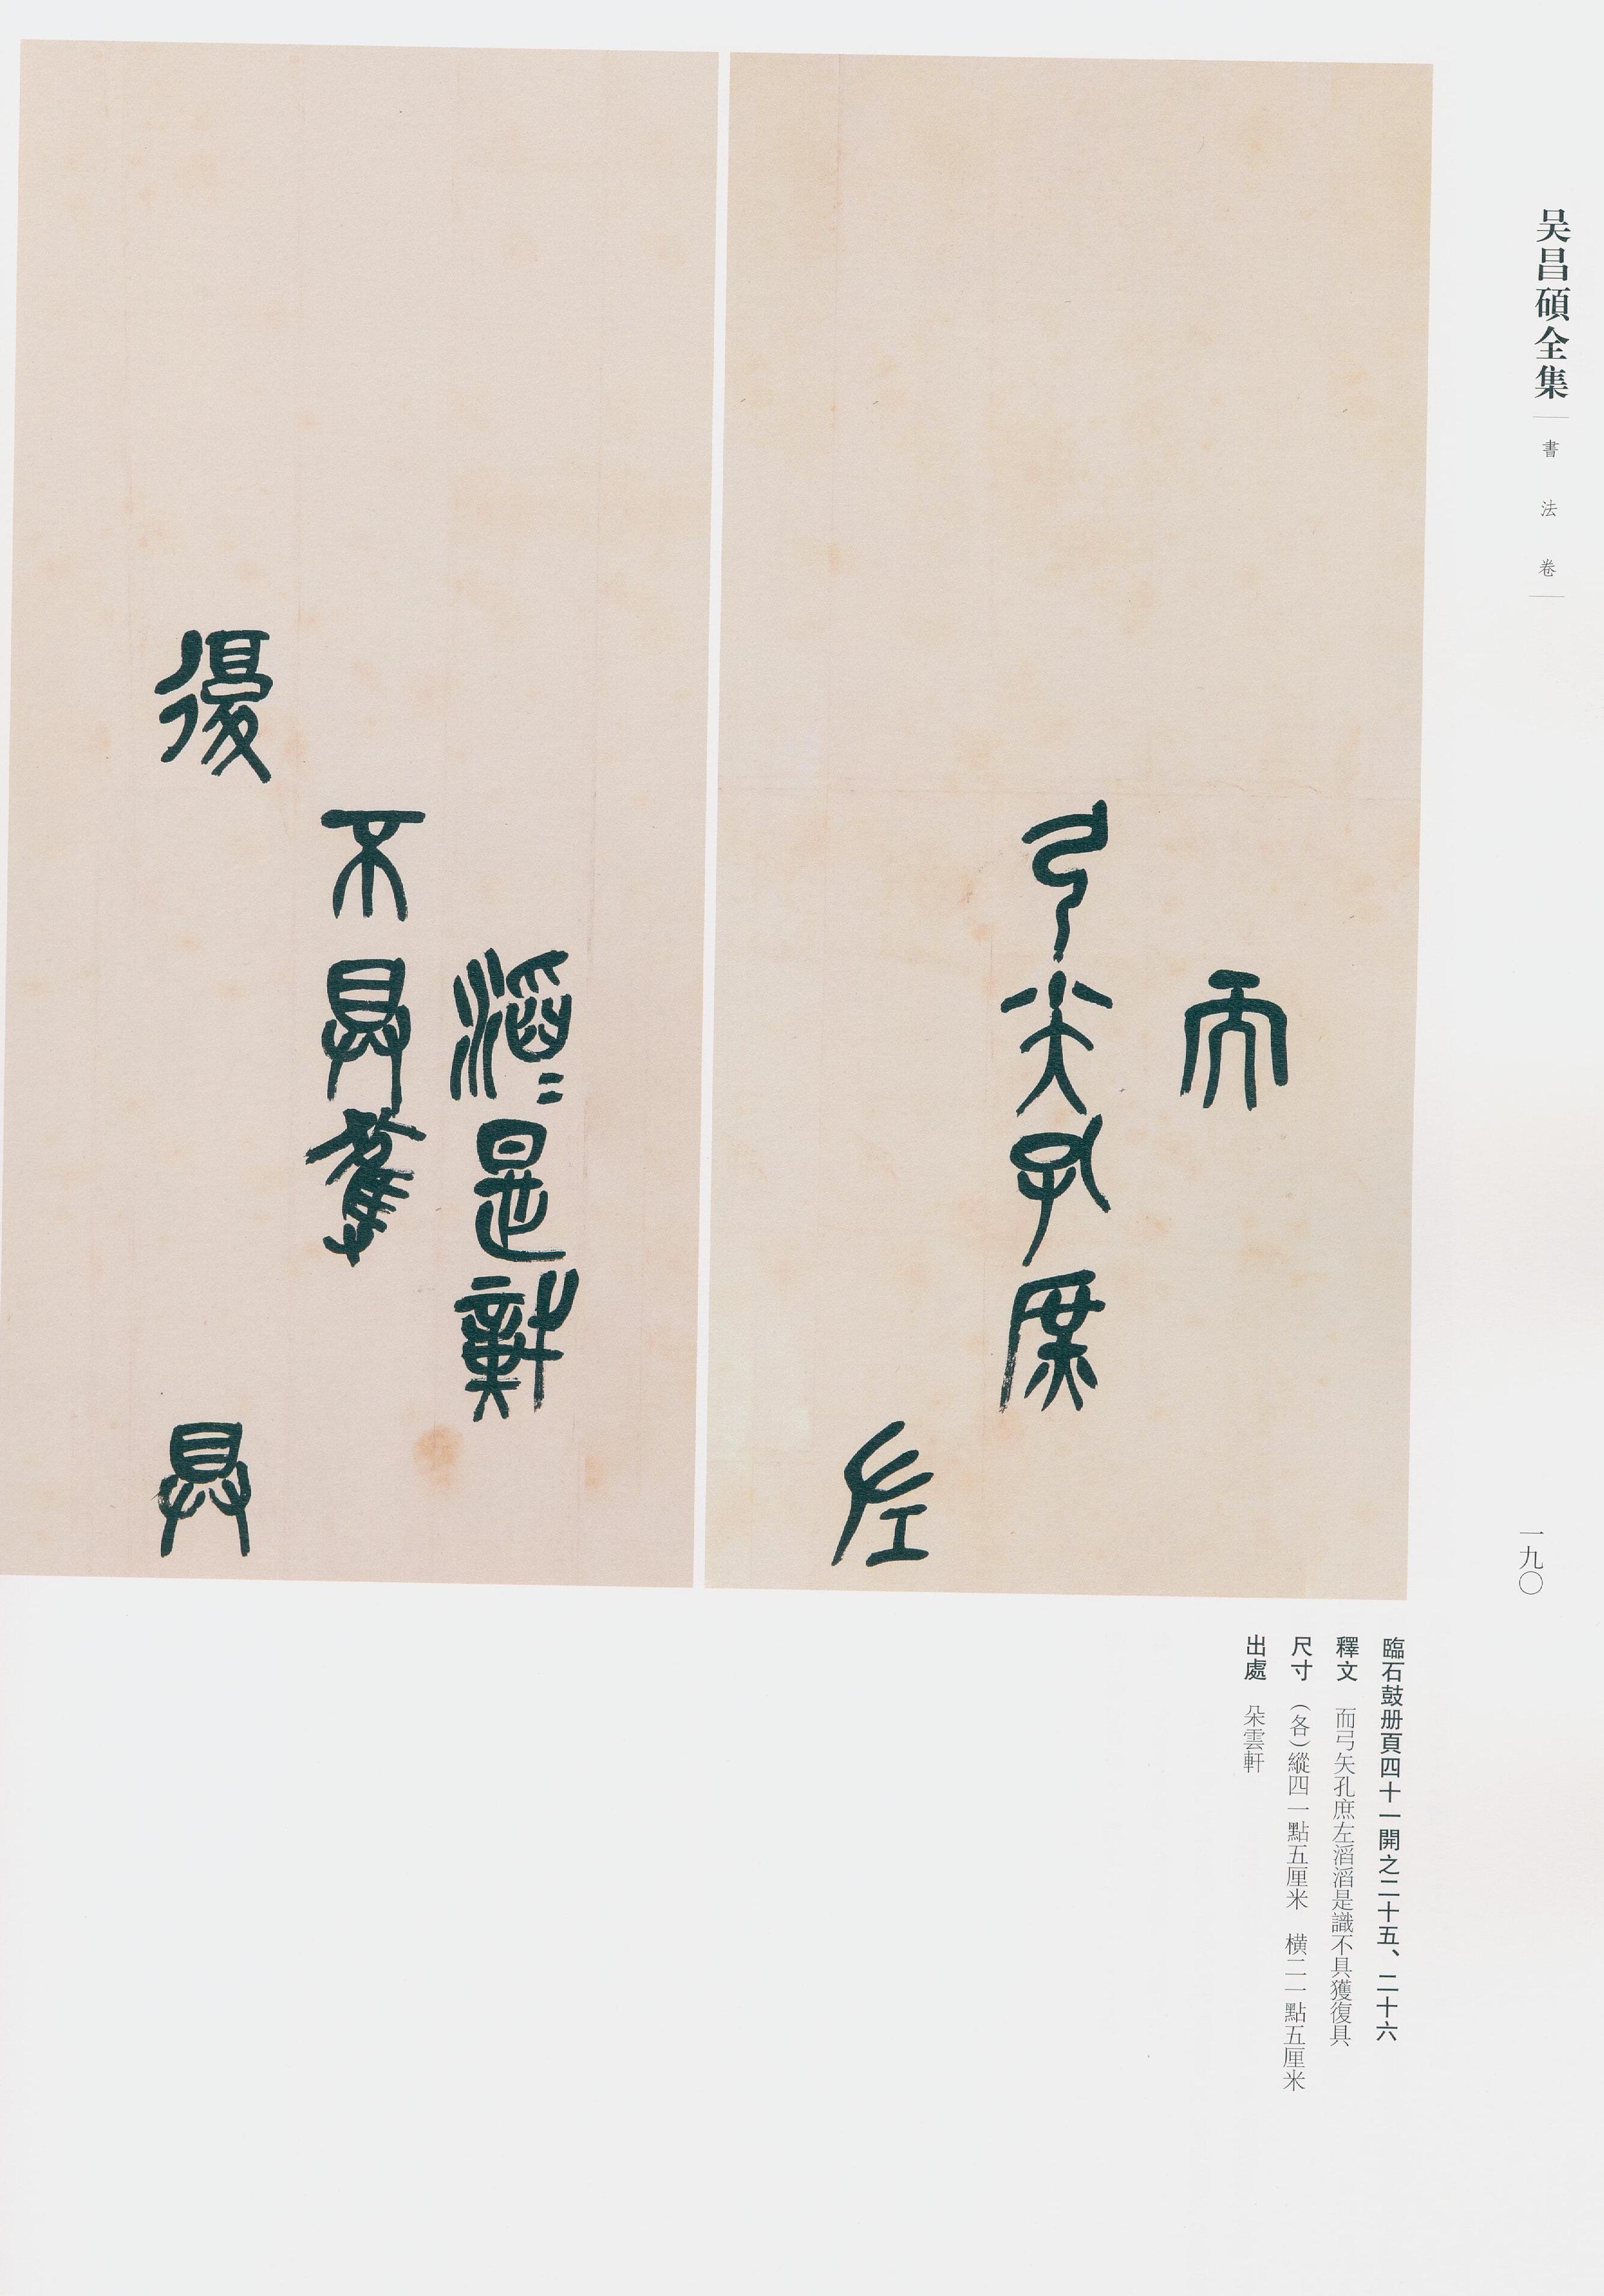 吴昌碩全集
書法卷
一九〇
而
弓矢孔庶
左
滔〻是
不具
復
具
臨石鼓册頁四十一開之二十五、二十六
釋文 而弓矢孔庶左滔滔是識不具獲復具
尺寸 (各)縱四一點五厘米 横二一點五厘米
出處 朵雲軒